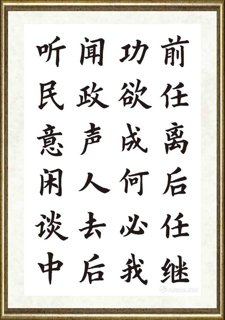 前任离后任继
功欲成何必我
闻政声人去后
听民意闲谈中